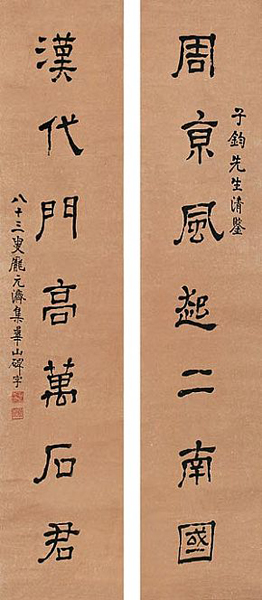 子鈞先生清鑒
周京風起二南國
漢代門高萬石君
八十三叟龐元濟集華山碑字